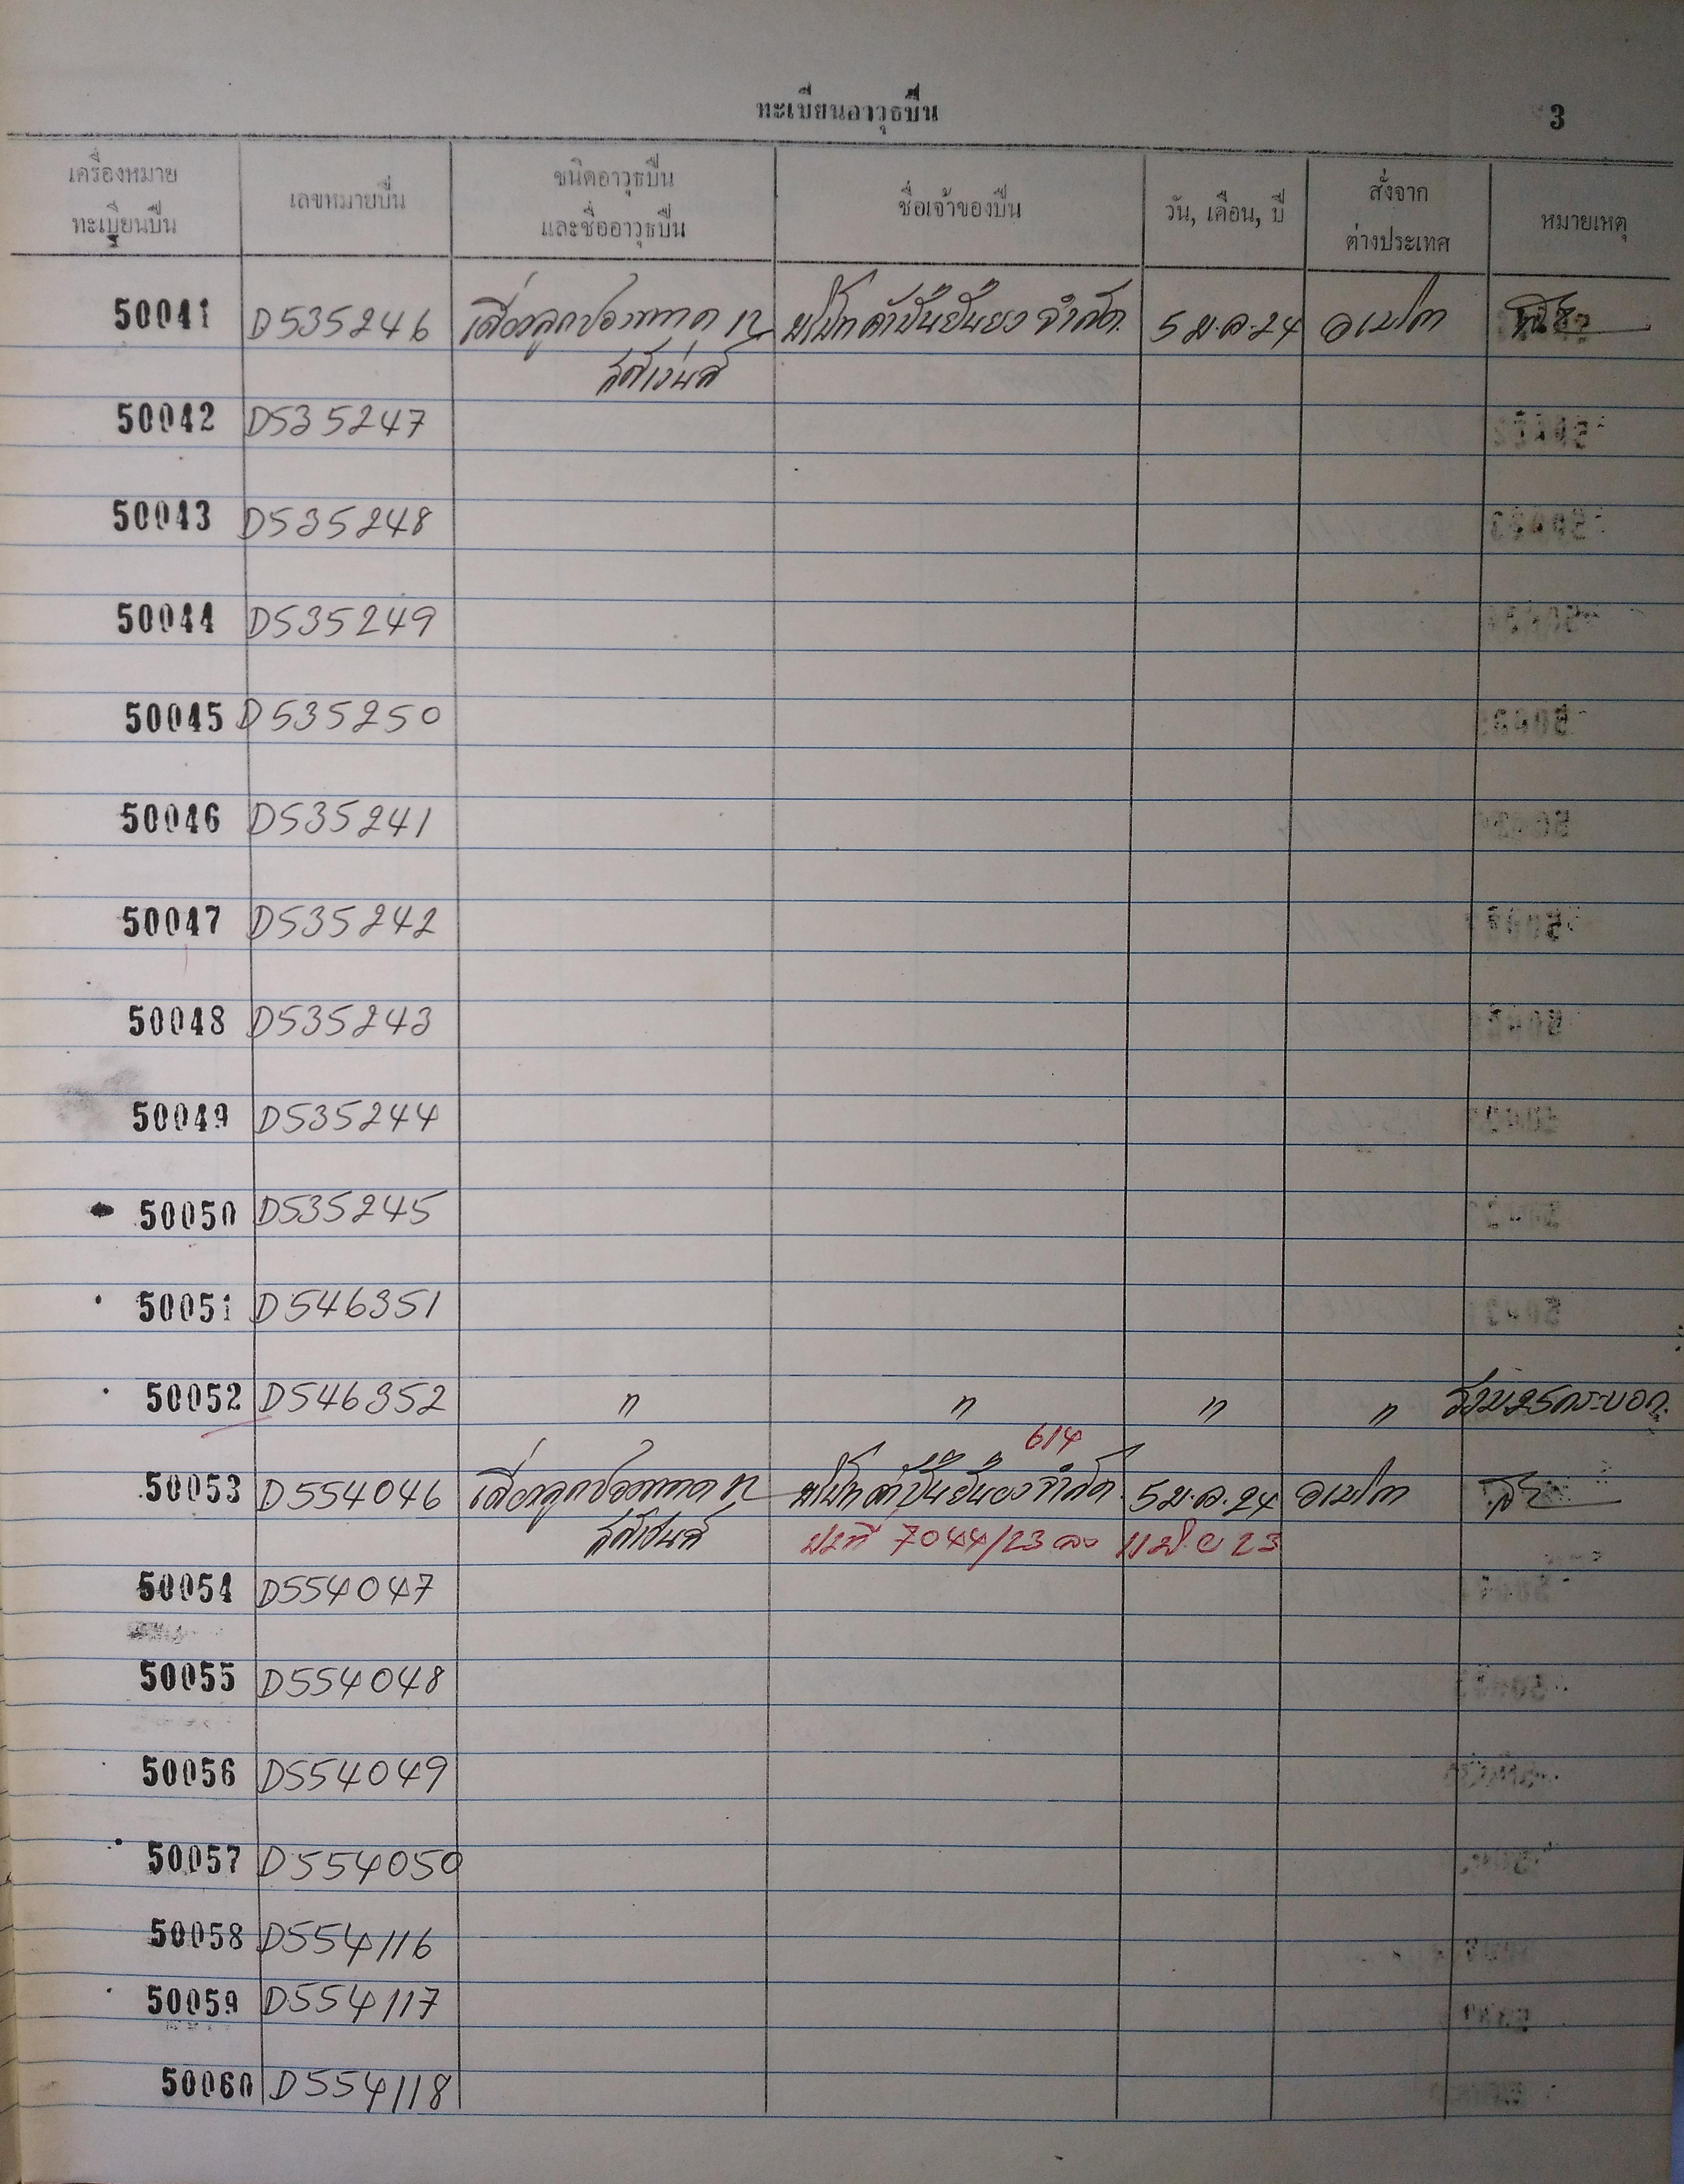 ทะเบียนอาวุธปืน
3
เครื่องหมาย
ทะเบียนปืน
เลขหมายปืน
ชนิดอาวุธปืน
และชื่ออาวุธปืน
ชื่อเจ้าของปืน
วัน, เดือน, ปี
สั่งจาก
ต่างประเทศ
หมายเหตุ
50041 D535246 จำกัด 5 ม.ค. 24 อเมริกา
50042 D535247
50043 D535248
50044 D535249
50045 D535250
50046 D535241
50047 D535242
50048 D535243
50049 D535244
50050 D535245
50051 D546351
50052 D546352 " " " " รวม 25 กระบอก
614
50053 D554046 จำกัด 5 ม.ค. 24 อเมริกา
ที่ 7044/23 ลง 23
50054 D554047
50055 D554048
50056 D554049
50057 D554050
50058 D554116
50059 D554117
50060 D554118